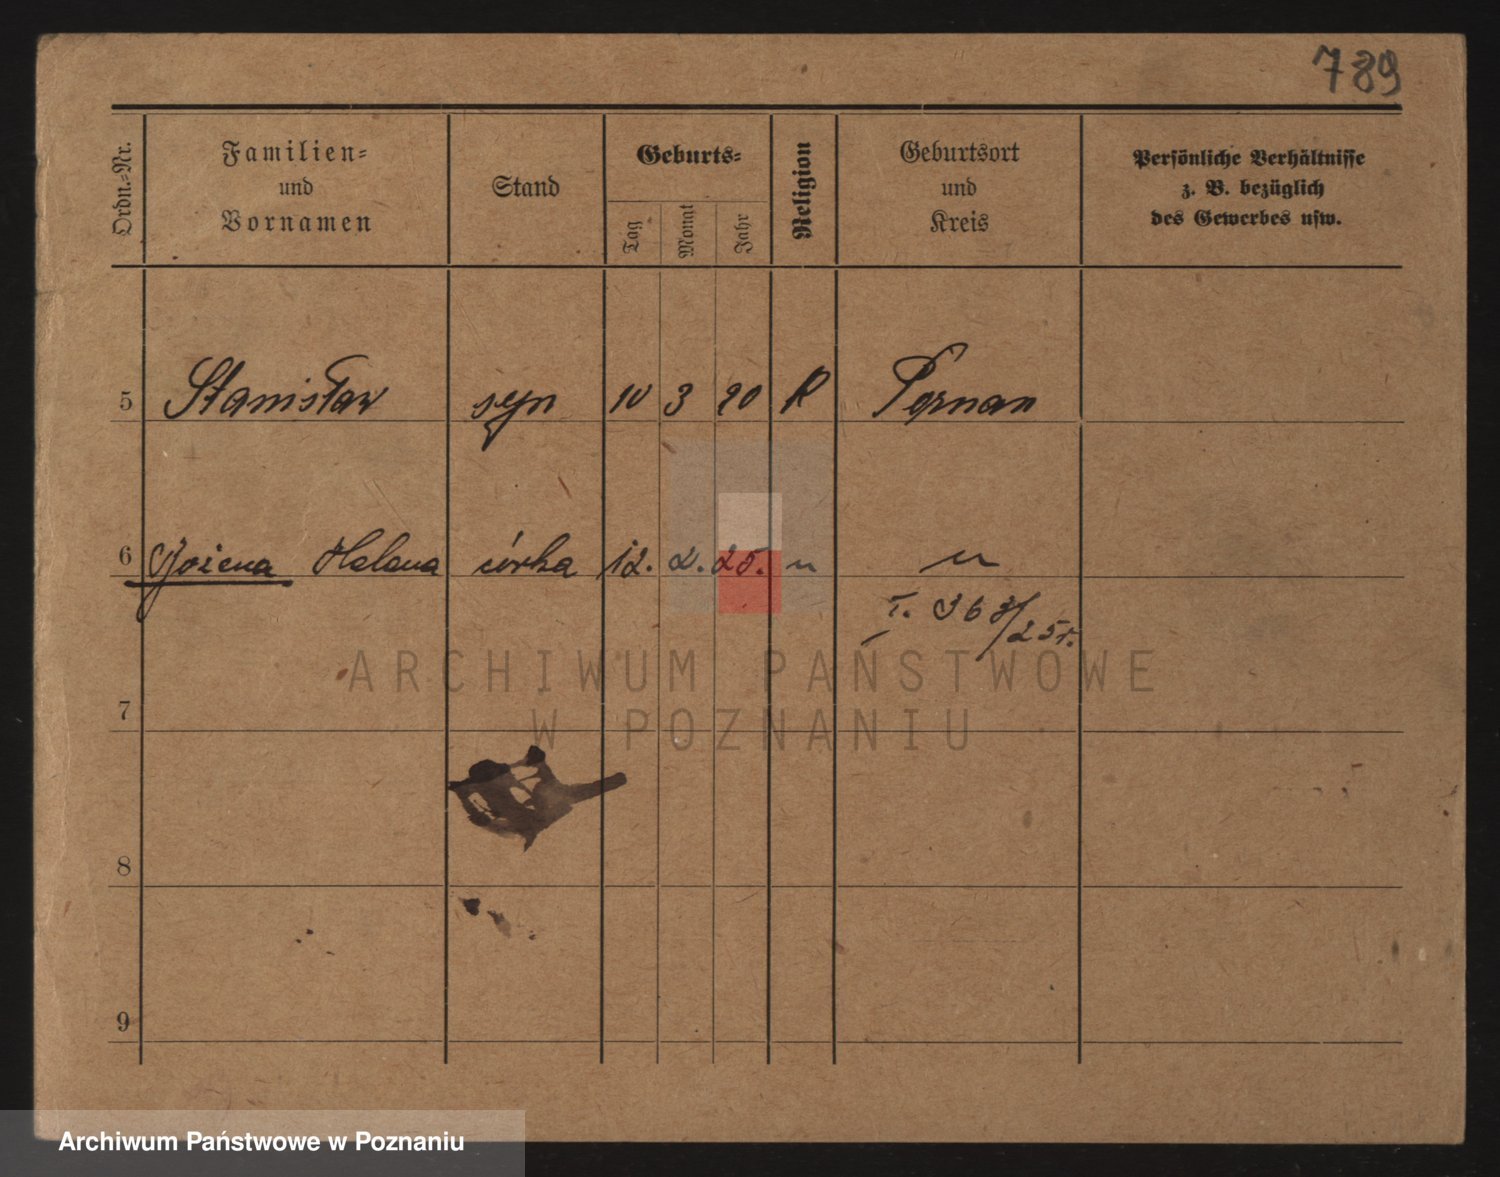 789
Ordn.-Nr.
Familien-
und
Vornamen
Stand
Geburts-
Tag
Monat
Jahr
Religion
Geburtsort
und
Kreis
Persönliche Verhältnisse
z. B. bezüglich
des Gewerbes usw.
5 Stanisław syn 10 3 20 R Poznan
6 Helena córka 12. 2. 25. " "
T. 363/25r.
7
8
9
ARCHIWUM PAŃSTWOWE
W POZNANIU
Archiwum Państwowe w Poznaniu